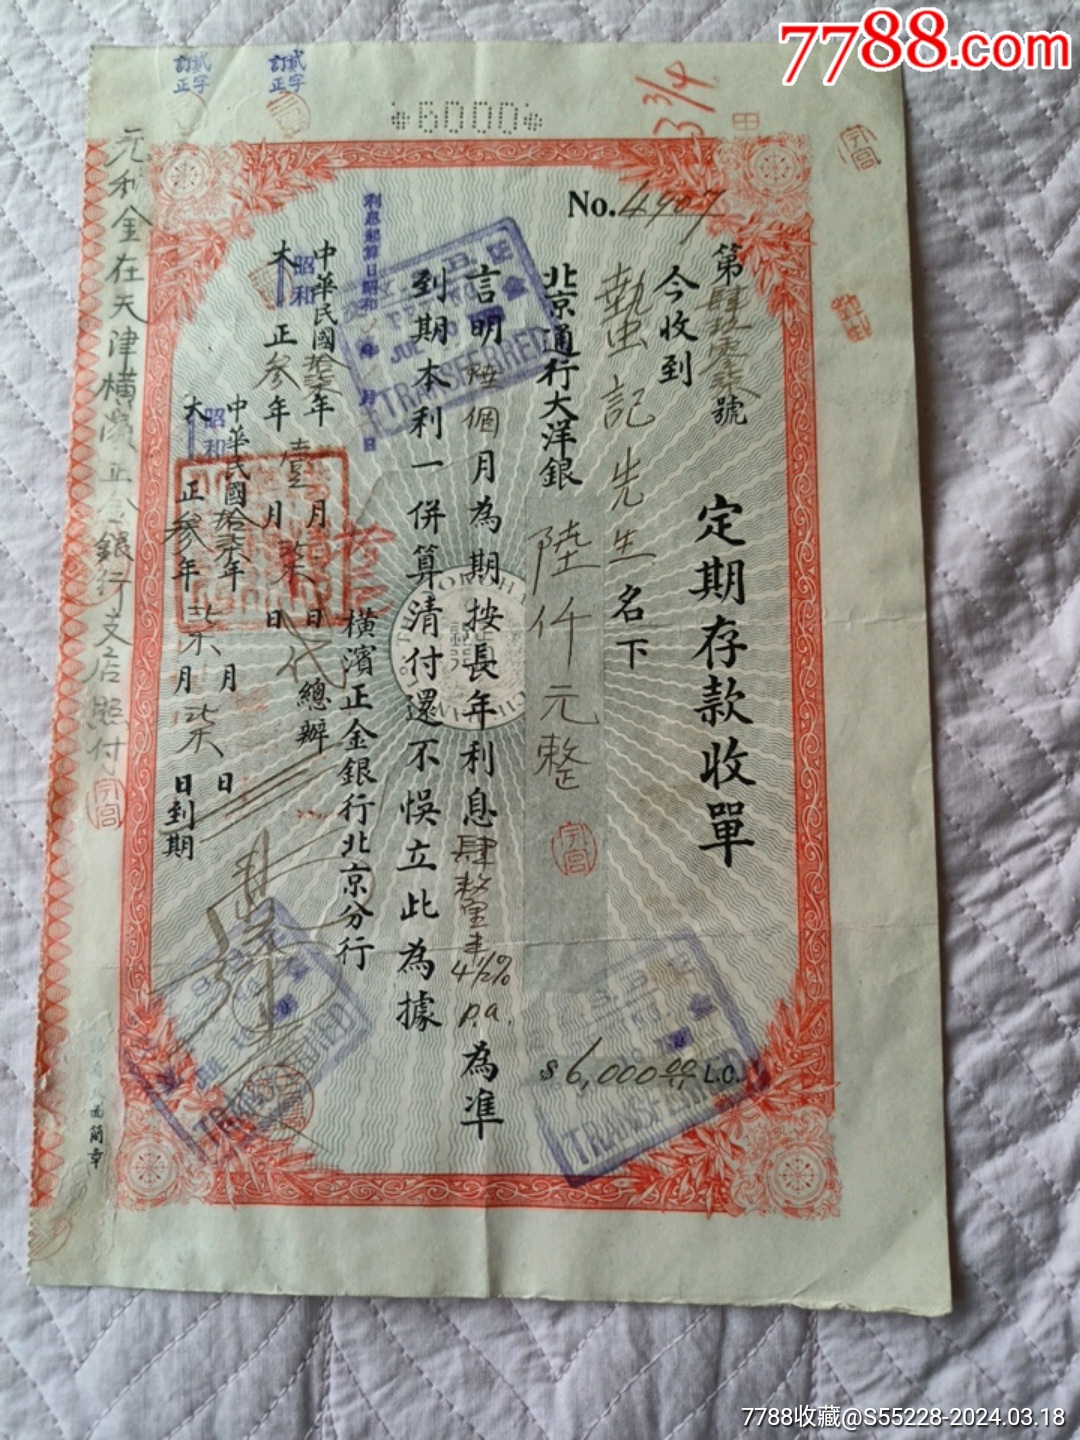 7788.com
貳字
訂正
貳字
訂正
*6000*
3 3/4
No. 4907
第肆玖零柒號
定期存款收單
今收到
蟄記先生名下
北京通行大洋銀 陸仟元整
$ 6,000.00 L.C.
言明陸個月為期按長年利息肆釐半 4½% p.a. 為準
到期本利一併算清付還不悞立此為據
利息起算日昭和 年 月 日
TRANSFERRED
TRANSFERRED
TRANSFERRED
橫濱正金銀行北京分行
代
總辦
中華民國拾柒年壹月柒日
大正
昭和
叁年 月 日
中華民國拾柒年柒月柒日到期
大正
昭和
叁年 月 日
元利金在天津橫濱正金銀行支店照付
面簡章
7788收藏@S55228-2024.03.18